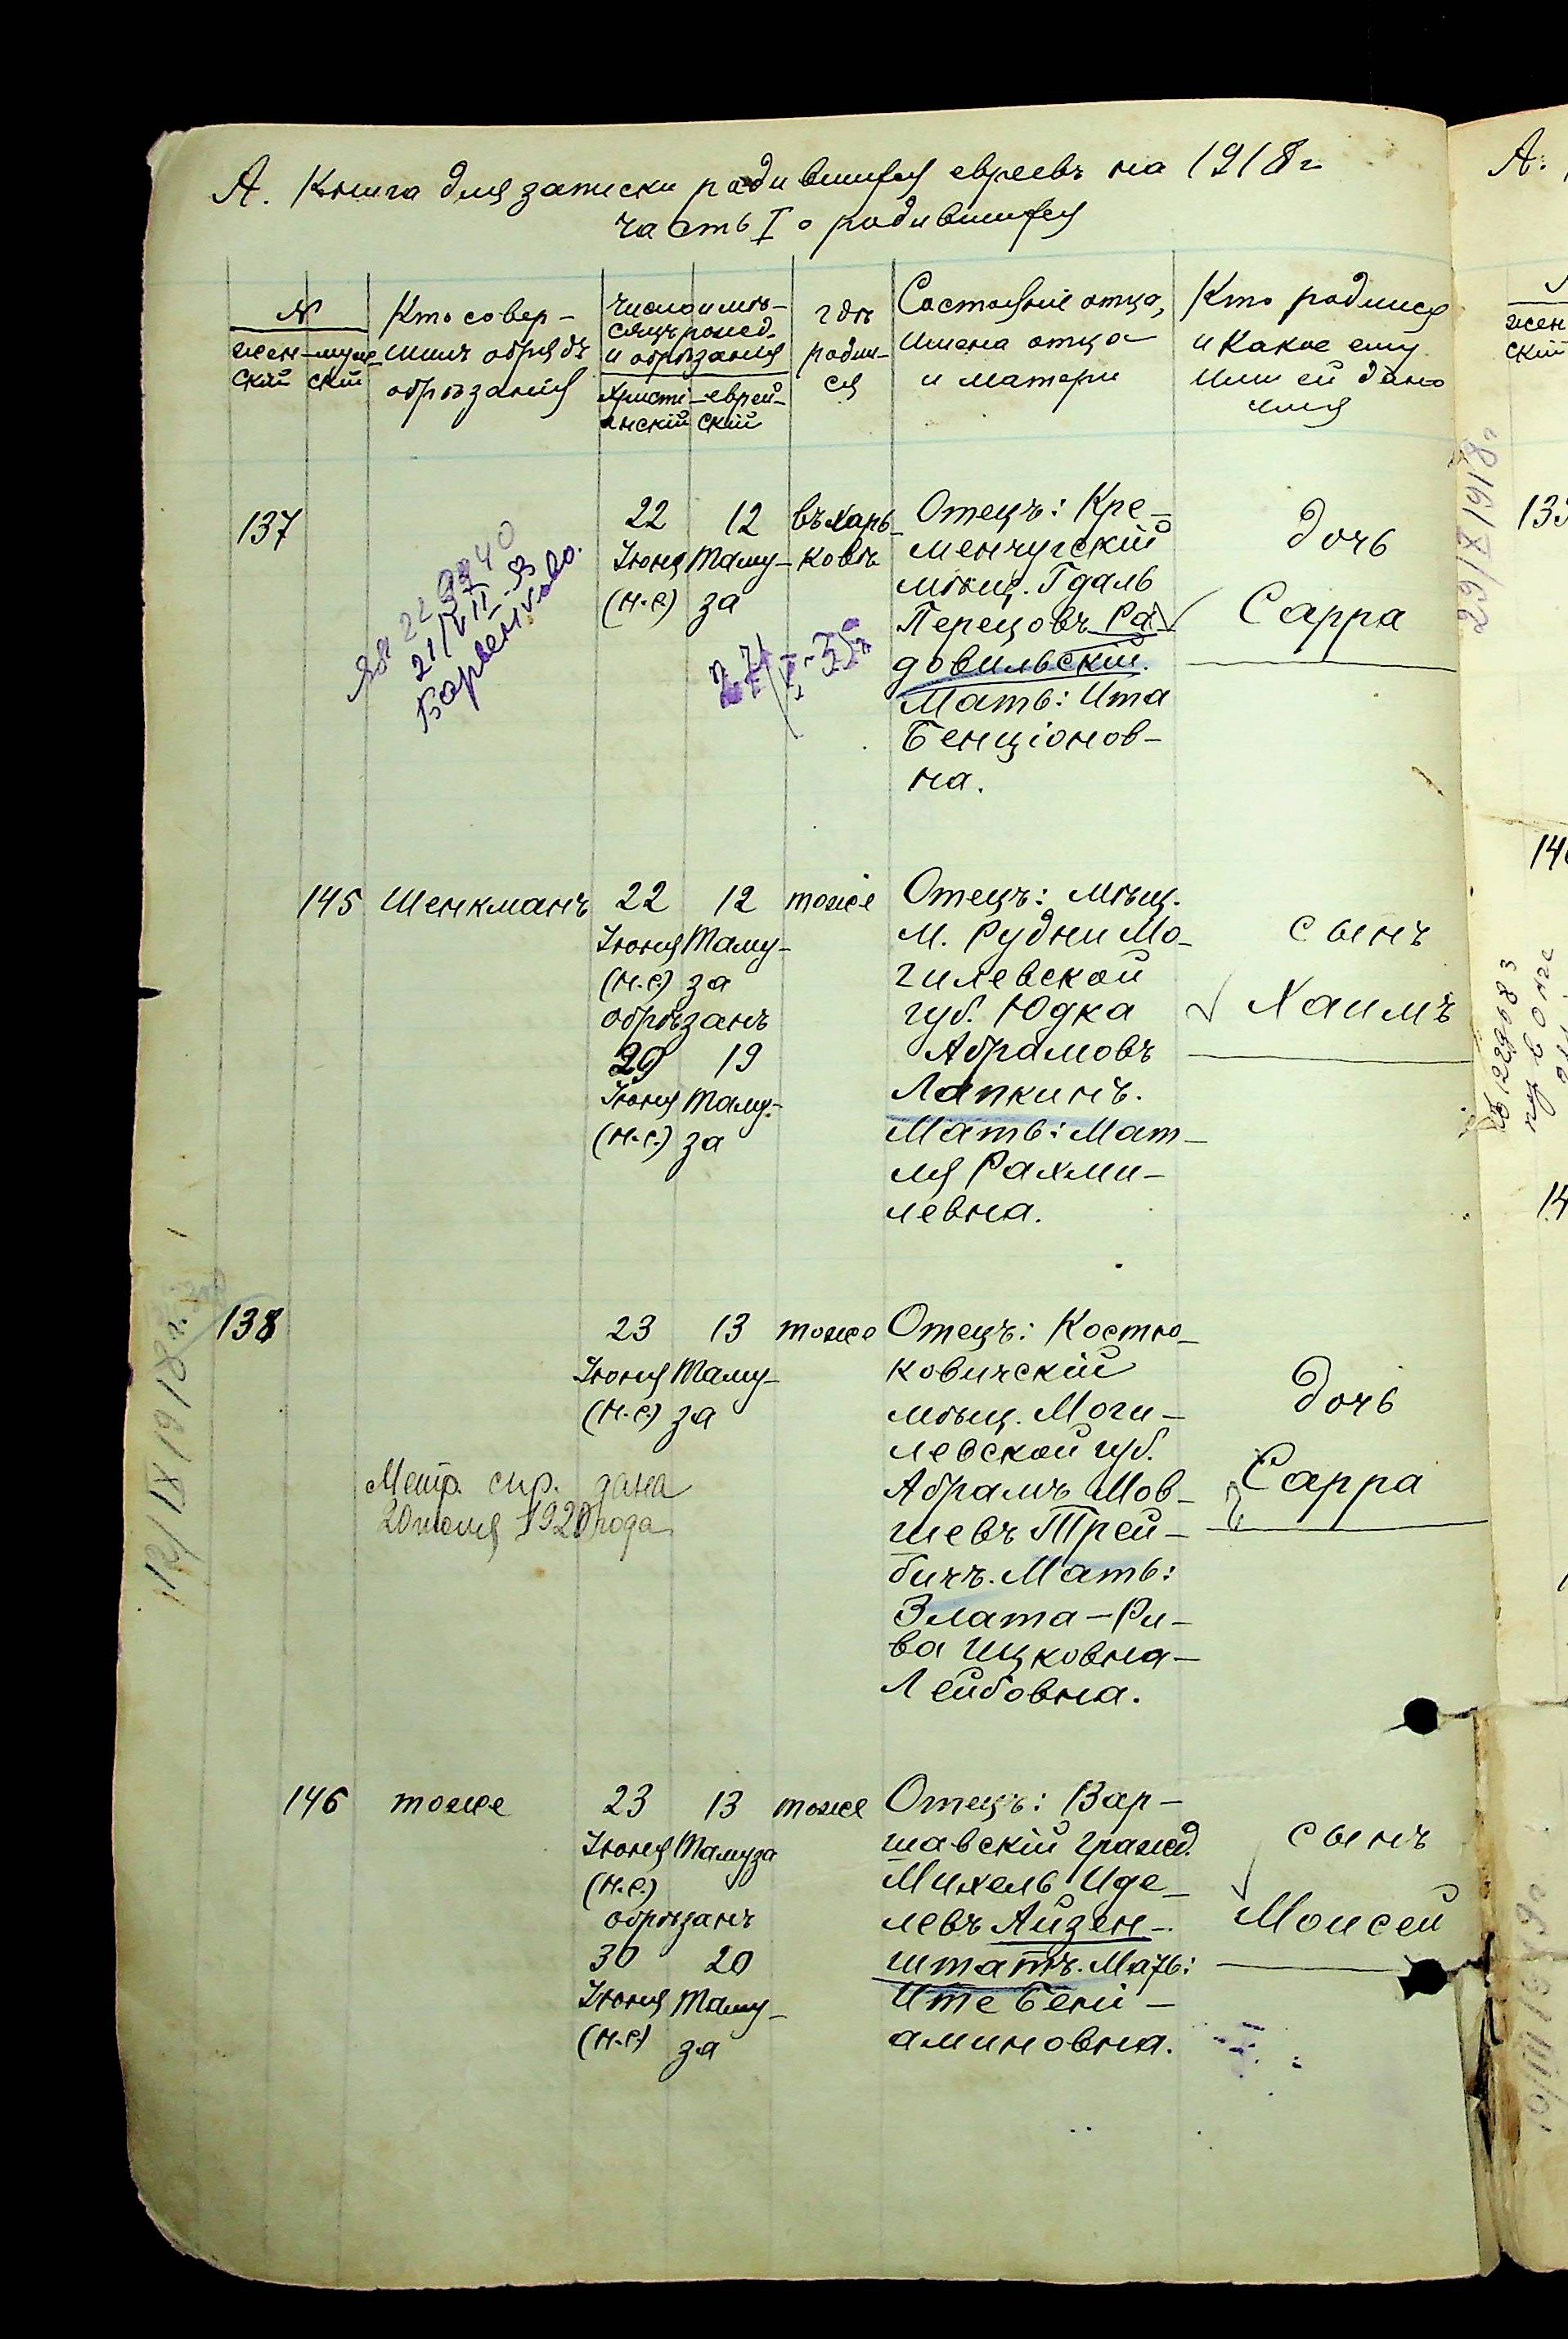 А. Книга для записки родившихся евреевъ на 1918 г
часть I о родившихся
№
жен-
скій
муж-
скій
Кто совер-
шилъ обрядъ
обрѣзанія
Число и мѣ-
сяцъ рожд.
и обрѣзанія
Христи-
анскій
еврей-
скій
гдѣ
родил-
ся
Состояніе отца,
имена отца
и матери
Кто родился
и какое ему
или ей дано
имя
137
21/VII-53
Барвенково.
22
Іюня
(н.с)
12
Таму-
за
въ Харь-
ковѣ
Отецъ: Кре-
менчугскій
мѣщ. Гдаль
Перецовъ Ра-
довильскій.
Мать: Ита
Бенціонов-
на.
дочь
Сарра
145
Шенкманъ
22
Іюня
(н.с.)
12
Таму-
за
обрѣзанъ
29
Іюня
(н.с.)
19
Таму-
за
тоже
Отецъ: мѣщ.
м. Рудни Мо-
гилевской
губ. Юдка
Абрамовъ
Лапкинъ.
Мать: Мат-
ля Рахми-
левна.
сынъ
Хаимъ
12/IX 1918 г.
138
Метр. спр. дана
20 июля 1920 года
23
Іюня
(н.с.)
13
Таму-
за
тоже
Отецъ: Костю-
ковичскій
мѣщ. Моги-
левской губ.
Абрамъ Мов-
шевъ Трей-
бичъ. Мать:
Злата-Ри-
ва Ицковна-
Лейбовна.
дочь
Сарра
146
тоже
23
Іюня
(н.с.)
13
Тамуза
обрѣзанъ
30
Іюня
(н.с)
20
Таму-
за
тоже
Отецъ: Вар-
шавскій гражд.
Михель Иде-
левъ Айзен-
штатъ. Мать:
Ите Бені-
аминовна.
сынъ
Моисей
А.
29/X 1918 г
жен
скій